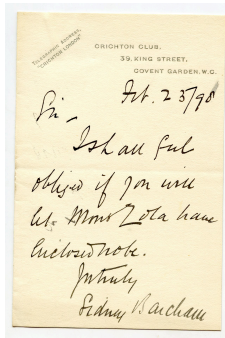 TELEGRAPHIC ADDRESS,
"CRICHTON LONDON"
CRICHTON CLUB,
39, KING STREET,
COVENT GARDEN, W.C.
Feb. 23/98
Sir –
I shall feel
obliged if you will
let Monsr Zola have
enclosed note.
Yrs truly
Sidney Barcham